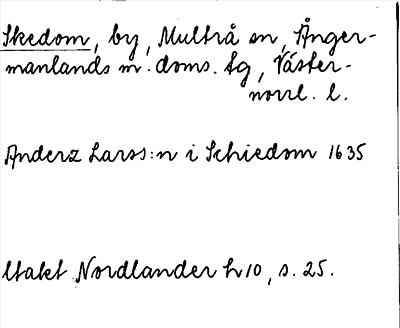 Skedom, by, Multrå sn, Ånger-
manlands m. doms. tg, Väster-
norrl. l.
Anderz Larss:n i Schiedom 1635
Utakt Nordlander h 10, s. 25.